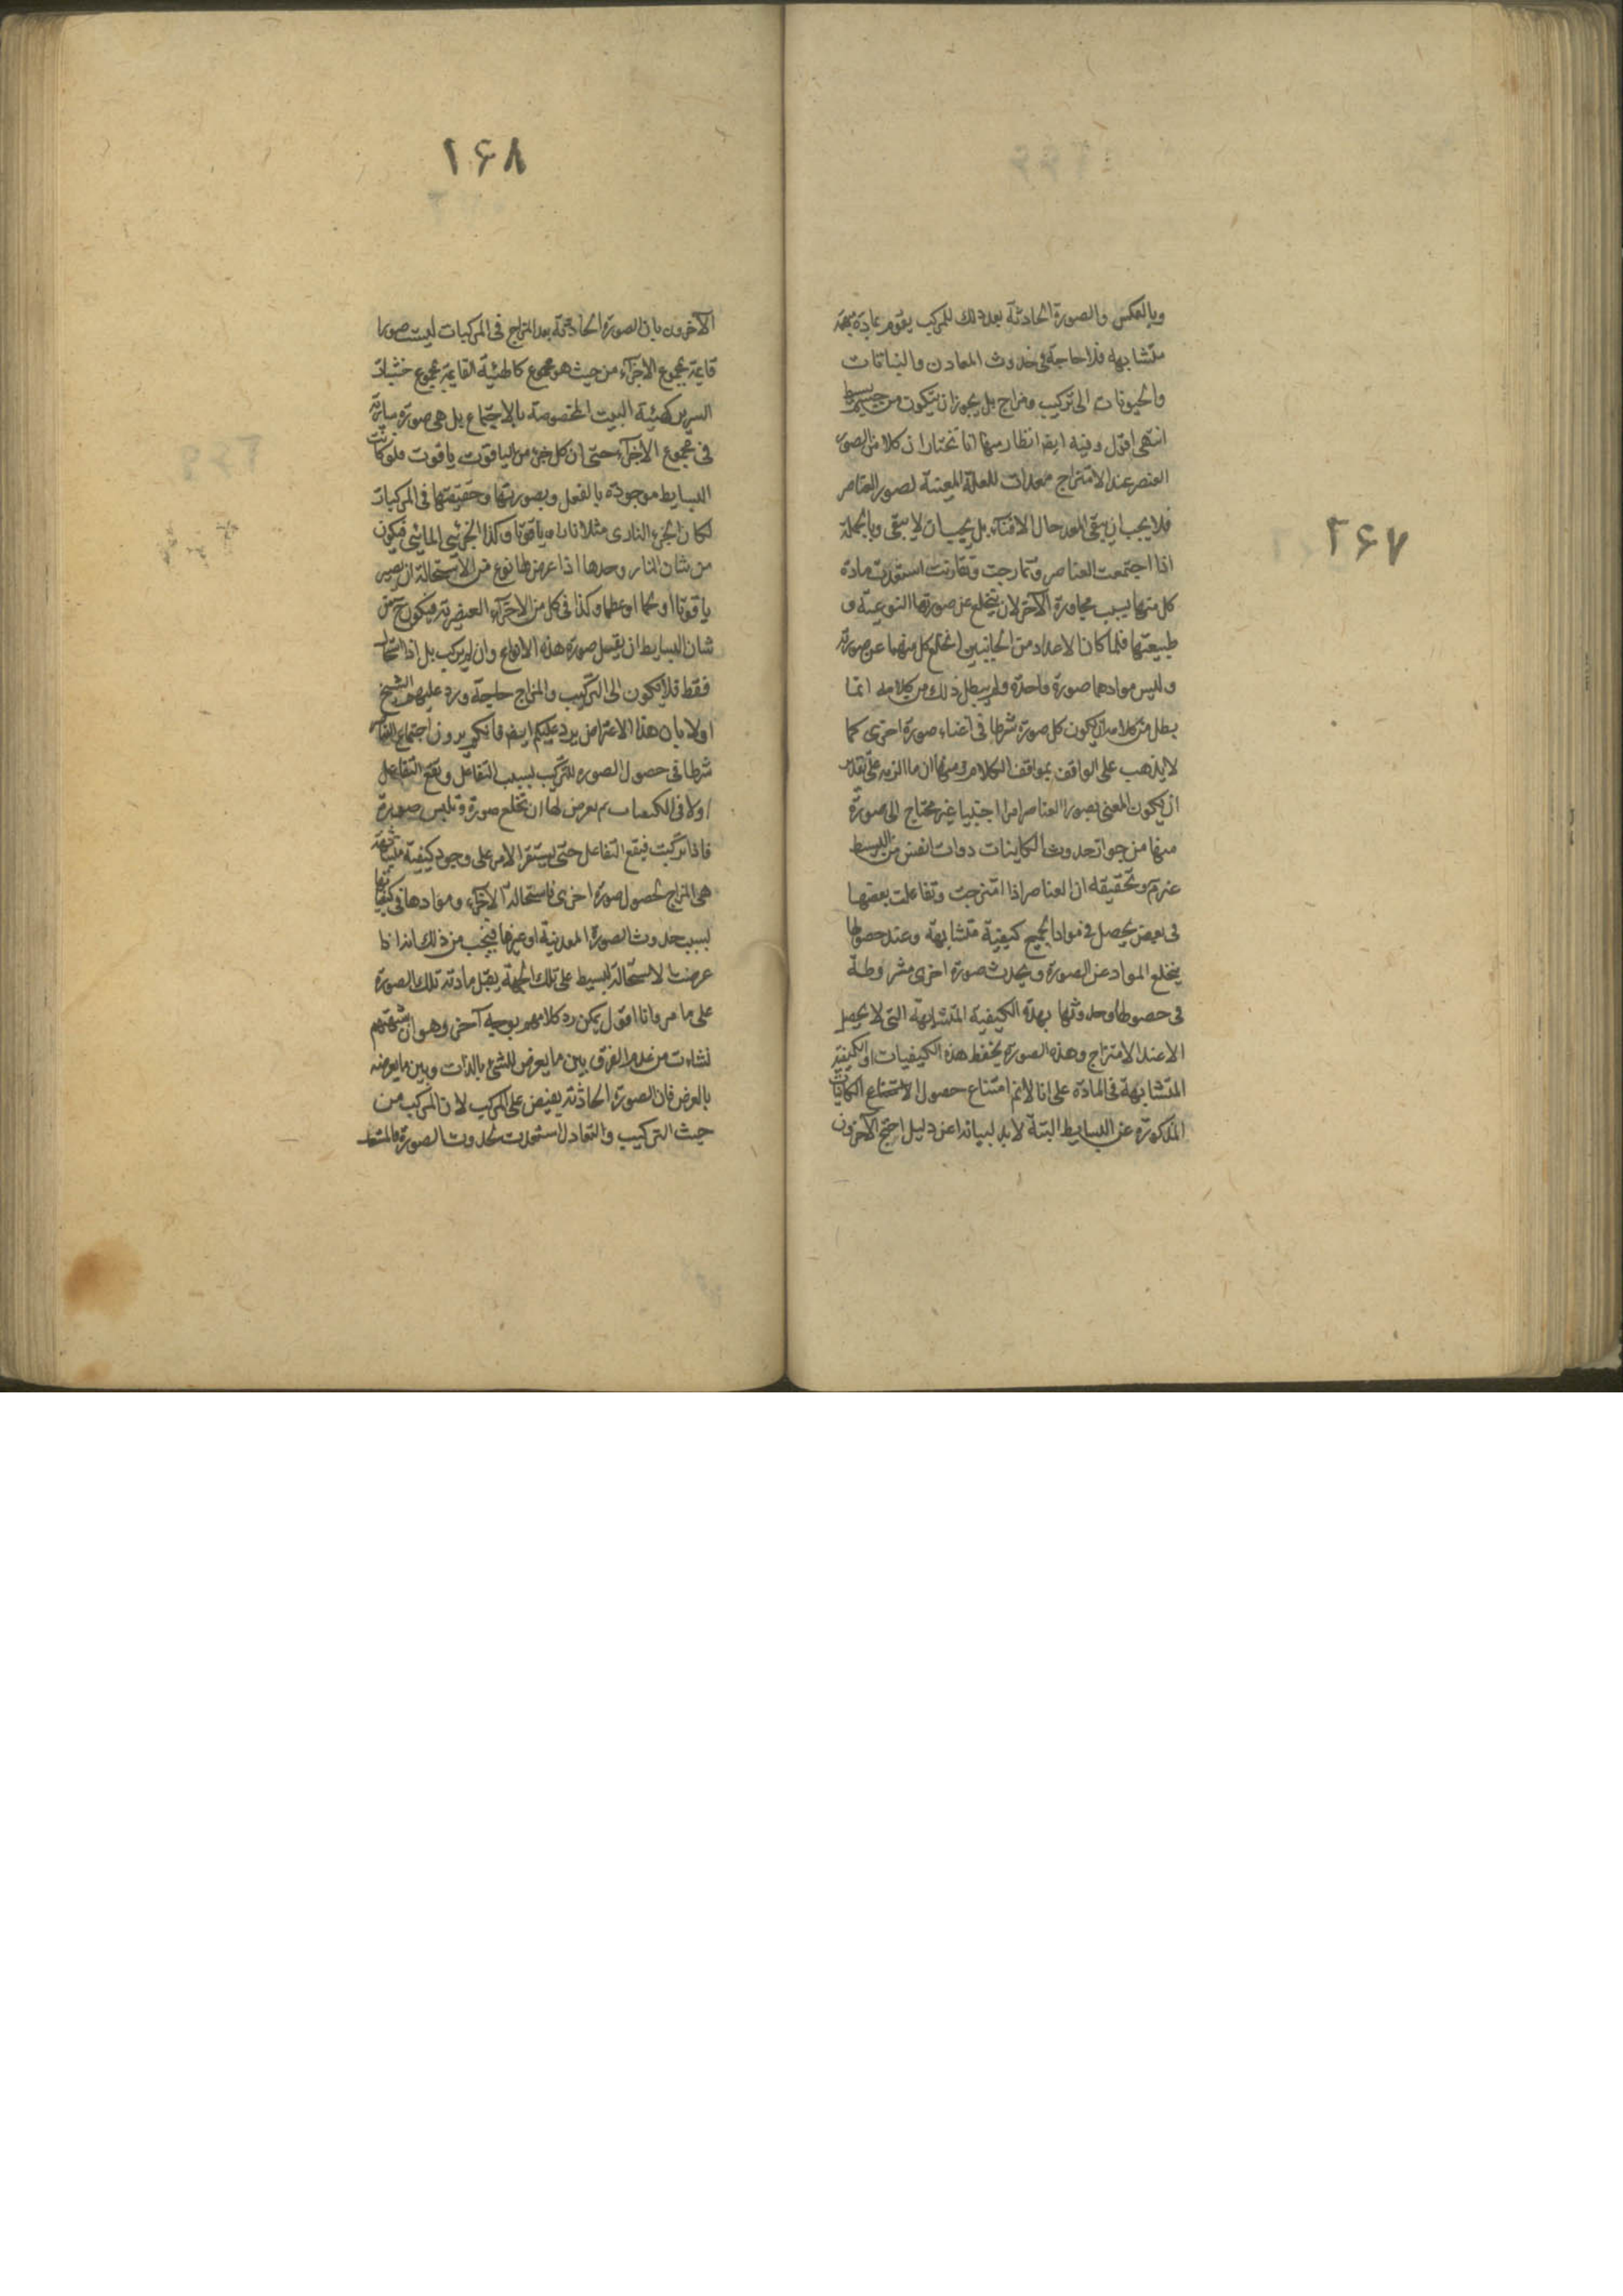 ۲۶۷
وبالعكس والصورة الحادثة بعد ذلك للمركب يقوم بمادة مبهمة
متشابهه فلا حاجة فى حدوث المعادن والنباتات
والحيونات الى تركيب ومزاج بل يجوز ان يتكون من جسم بسيط
انتهى اقول وفيه ايضا انظار منها انا نختار ان كلا من الصور
العنصر عند الامتزاج معدات للعلة المعينة لصور العناصر
فلا يجب ان يبقى المعد حال الافناء بل يجب ان لا يبقى وبالجملة
اذا اجتمعت العناصر وتمازجت وتقارنت استعدت مادة
كل منها بسبب مجاورة الآخر لان ينخلع عن صورتها النوعية و
طبيعتها فلما كان الاعداد من الجانبين انخلع كل منهما عن صورته
وليس موادهما صورة واحدة ولم يبطل ذلك من كلامه انما
بطل من كلامه ان يكون كل صورة شرطا فى افناء صورة اخرى كما
لا يذهب على الواقف بمواقف الكلام ومنها ان ما الزمه على تقدير
ان يكون المعنى بصور العناصر امرا اجنبيا غير محتاج الى صورة
منها من جواز حدوث الكاينات ذوات انفس من البسيط
غير تم وتحقيقه ان العناصر اذا امتزجت وتفاعلت بعضها
فى بعض يحصل فى مواد الجميع كيفية متشابهة وعند حصولها
ينخلع المواد عن الصورة ويحدث صورة اخرى مشروطة
فى حصولها وحدوثها بهذه الكيفية المتشابهة التى لا يحصل
الا عند الامتزاج وهذه الصورة يحفظ هذه الكيفيات او الكيفية
المتشابهة فى المادة على انا لا نم امتناع حصول الكاينات
المذكورة عن البسايط البتة لا بد لبيانه من دليل احتج الآخرون
۲۶۸
الآخرون بان الصورة الحادثة بعد المزاج فى المركبات ليست صورا
قايمة بمجموع الاجزاء من حيث هو مجموع كالهيئة القايمة بمجموع خشبات
السرير كهيئة البيت المخصوصة بالاجتماع بل هى صورة سارية
فى مجموع الاجزاء حتى ان كل جزء من الياقوت ياقوت فلو كانت
البسايط موجودة بالفعل وبصورتها وحقيقتها فى المركبات
لكان الجزء النارى مثلا نارا وياقوتا وكذا الجزء المائى فيكون
من شان النار وحدها اذا عرض لها نوع من الاستحالة ان يصير
ياقوتا او لحما او عظما وكذا فى كل من الاجزاء العنصرية فيكون ح من
شان البسايط ان يقبل صورة هذه الانواع وان لم يركب بل اذا استحال
فقط فلا يكون الى التركيب والمزاج حاجة ورد عليهم الشيخ
اولا بان هذا الاعتراض يرد عليكم ايضا فانكم يرون اجتماع العناصر
شرطا فى حصول الصورة للتركيب بسبب التفاعل ويقع التفاعل
اولا فى الكيفيات ثم يعرض لها ان تخلع صورة وتلبس صورة
فاذا تركبت فيقع التفاعل حتى يستقر الامر على وجود كيفية متشابهة
هى المزاج لحصول صورة اخرى فاستحالة الاجزاء وموادها فى كيفياتها
بسبب حدوث الصورة المعدنية او غيرها فيجب من ذلك انه اذا
عرضت الاستحالة لبسيط على تلك الجهة يقبل مادته تلك الصورة
على ما مر وانا اقول يمكن رد كلامهم بوجه آخر وهو ان شبهتهم
نشاءت من عدم الفرق بين ما يعرض للشئ بالذات وبين ما يعرضه
بالعرض فان الصورة الحادثة يفيض على المركب لان المركب من
حيث التركيب والتعادل استعدت لحدوث الصورة